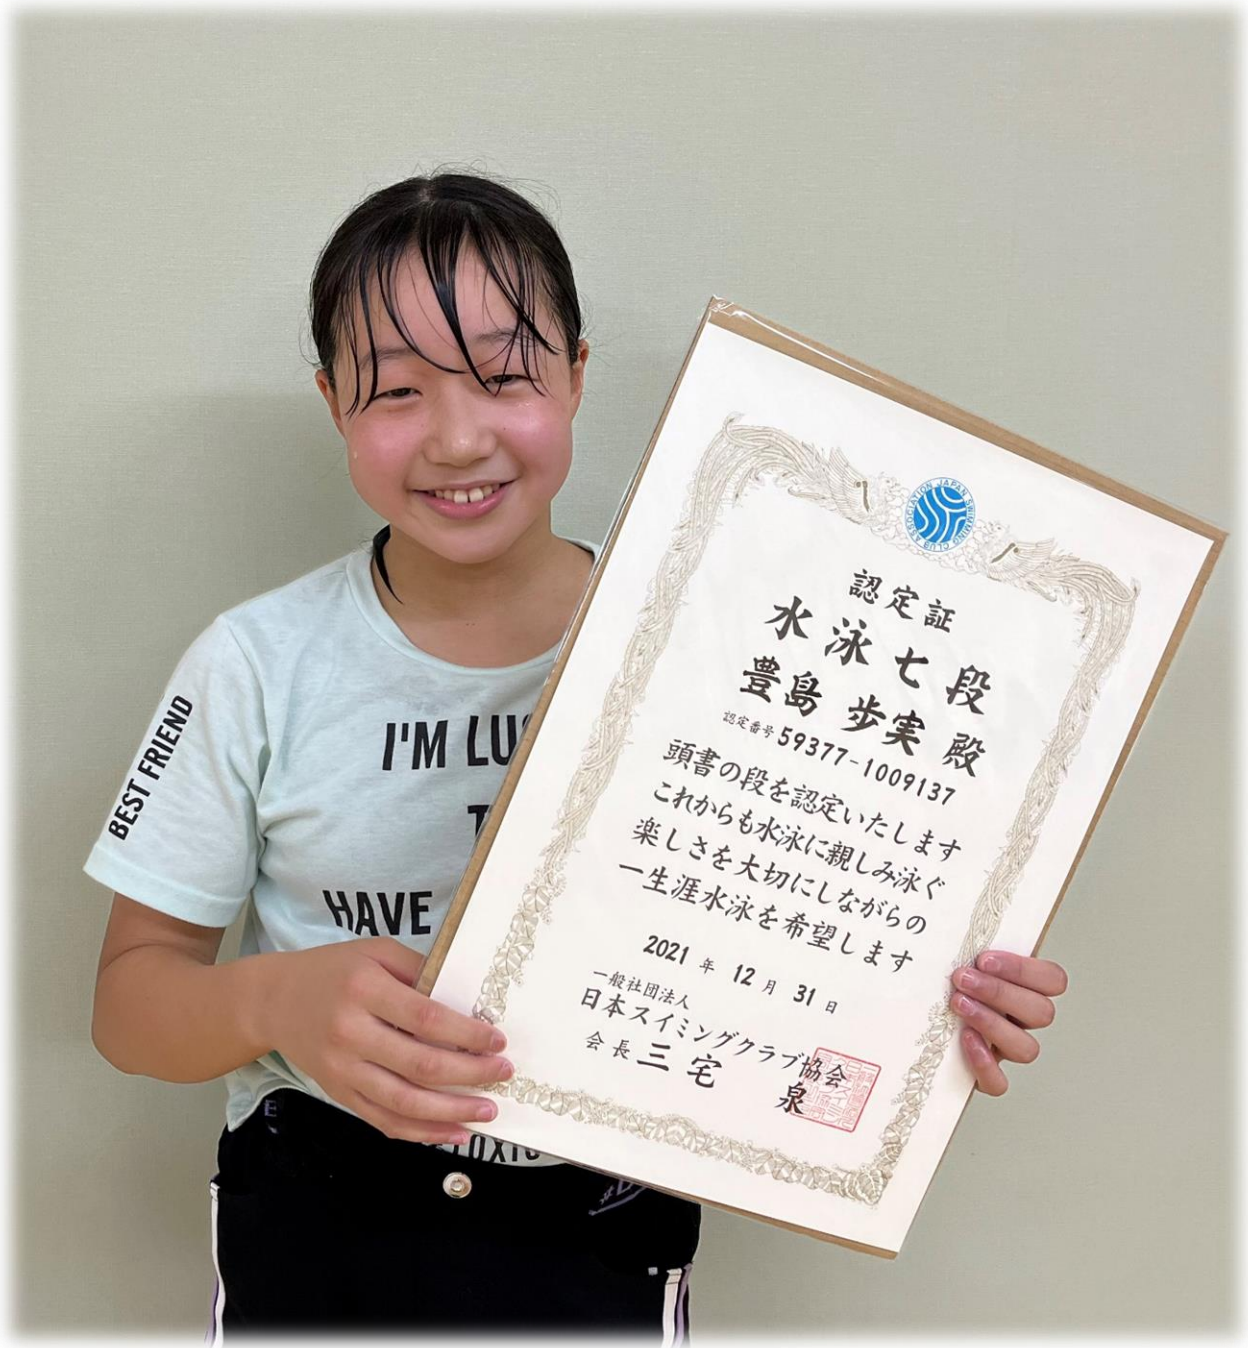 BEST FRIEND
I'M LU
HAVE
ASSOCIATION JAPAN SWIMMING CLUB
認定証
水泳七段
豊島 歩実 殿
認定番号 59377-1009137
頭書の段を認定いたします
これからも水泳に親しみ泳ぐ
楽しさを大切にしながらの
一生涯水泳を希望します
2021 年 12 月 31 日
一般社団法人
日本スイミングクラブ協会
会長 三宅 泉